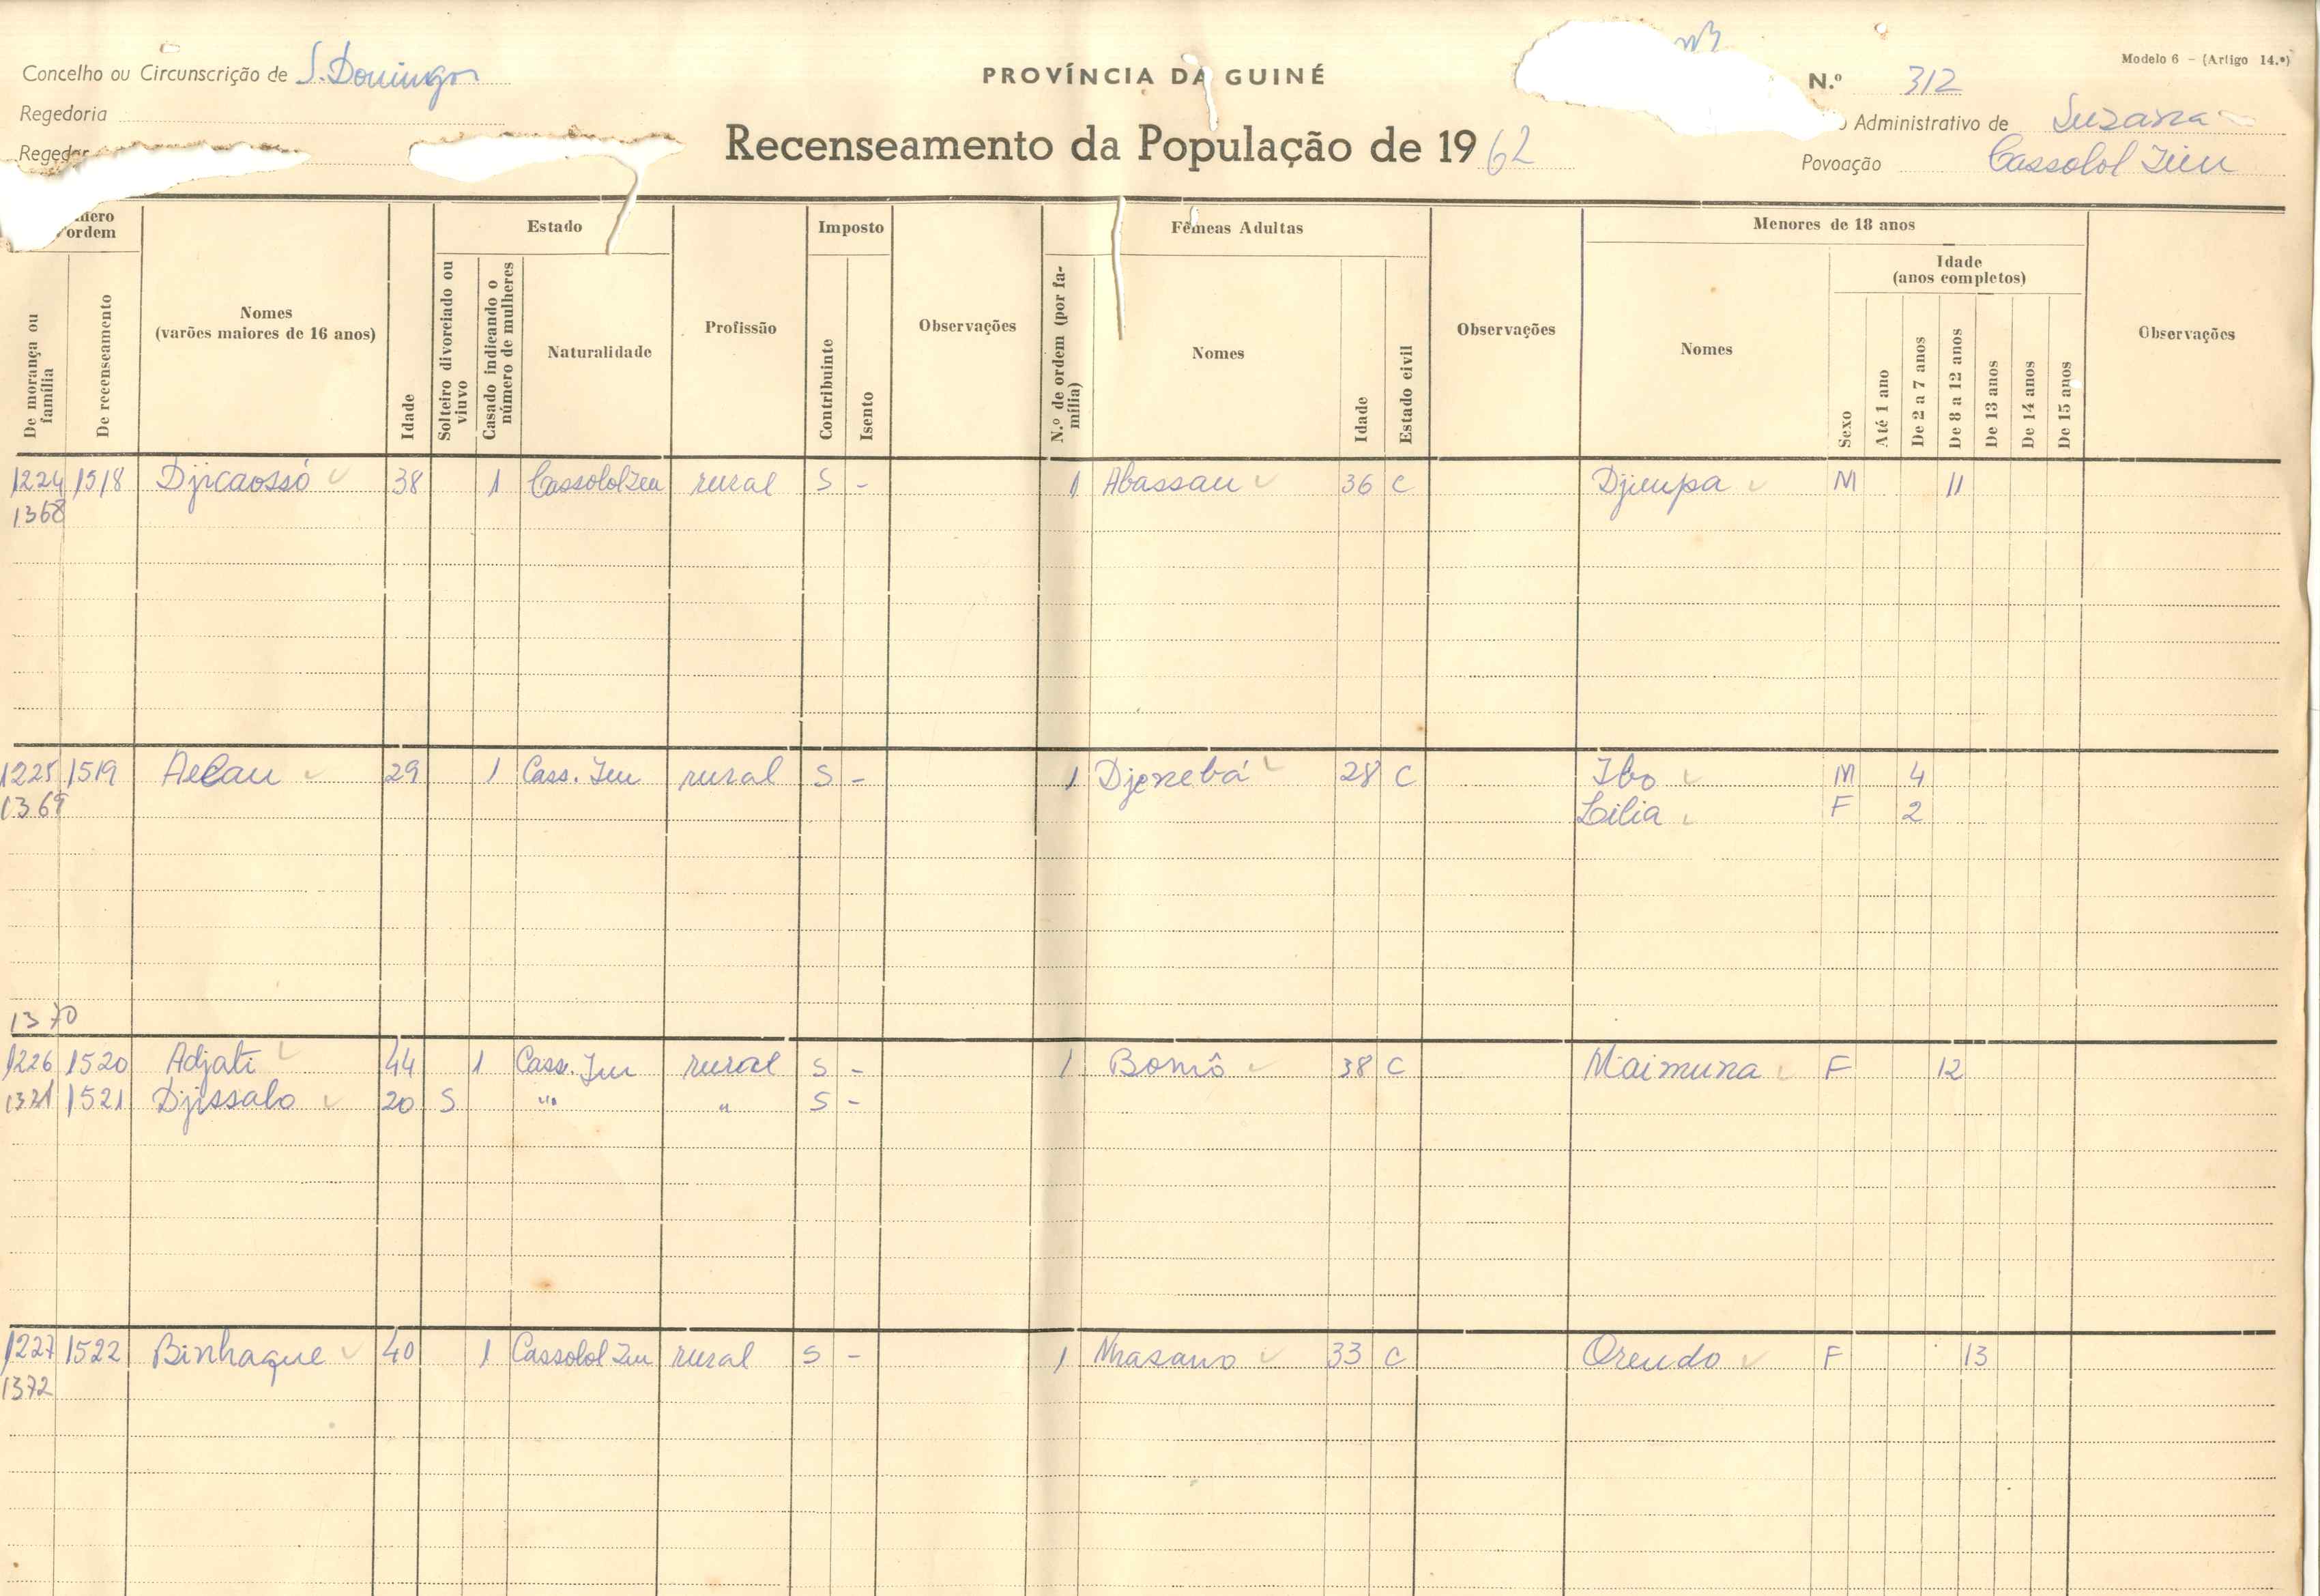 Modelo 6 — (Artigo 14.º)
Concelho ou Circunscrição de S. Domingos
PROVÍNCIA DA GUINÉ
N.º 312
Regedoria
Administrativo de Suzana
Regedor
Recenseamento da População de 1962
Povoação Cassolol Ieu
ordem
Estado
Imposto
Fêmeas Adultas
Menores de 18 anos
De morança ou família
De recenseamento
Nomes
(varões maiores de 16 anos)
Idade
Solteiro divorciado ou viuvo
Casado indicando o número de mulheres
Naturalidade
Profissão
Contribuinte
Isento
Observações
N.º de ordem (por família)
Nomes
Idade
Estado civil
Observações
Nomes
Sexo
Idade
(anos completos)
Até 1 ano
De 2 a 7 anos
De 8 a 12 anos
De 13 anos
De 14 anos
De 15 anos
Observações
1224 1518 Djicaossó 38 1 Cassolol Ieu rural S - 1 Abassau 36 C Djeupa M 11
1368
1225 1519 Aelau 29 1 Cass. Ieu rural S - 1 Djenebá 28 C Ibo M 4
1369 Lilia F 2
1370
1226 1520 Adjati 44 1 Cass. Ieu rural S - 1 Bomô 38 C Maimuna F 12
1371 1521 Djissalo 20 S " " S -
1227 1522 Binhaque 40 1 Cassolol Ieu rural S - 1 33 C Oreudo F 13
1372